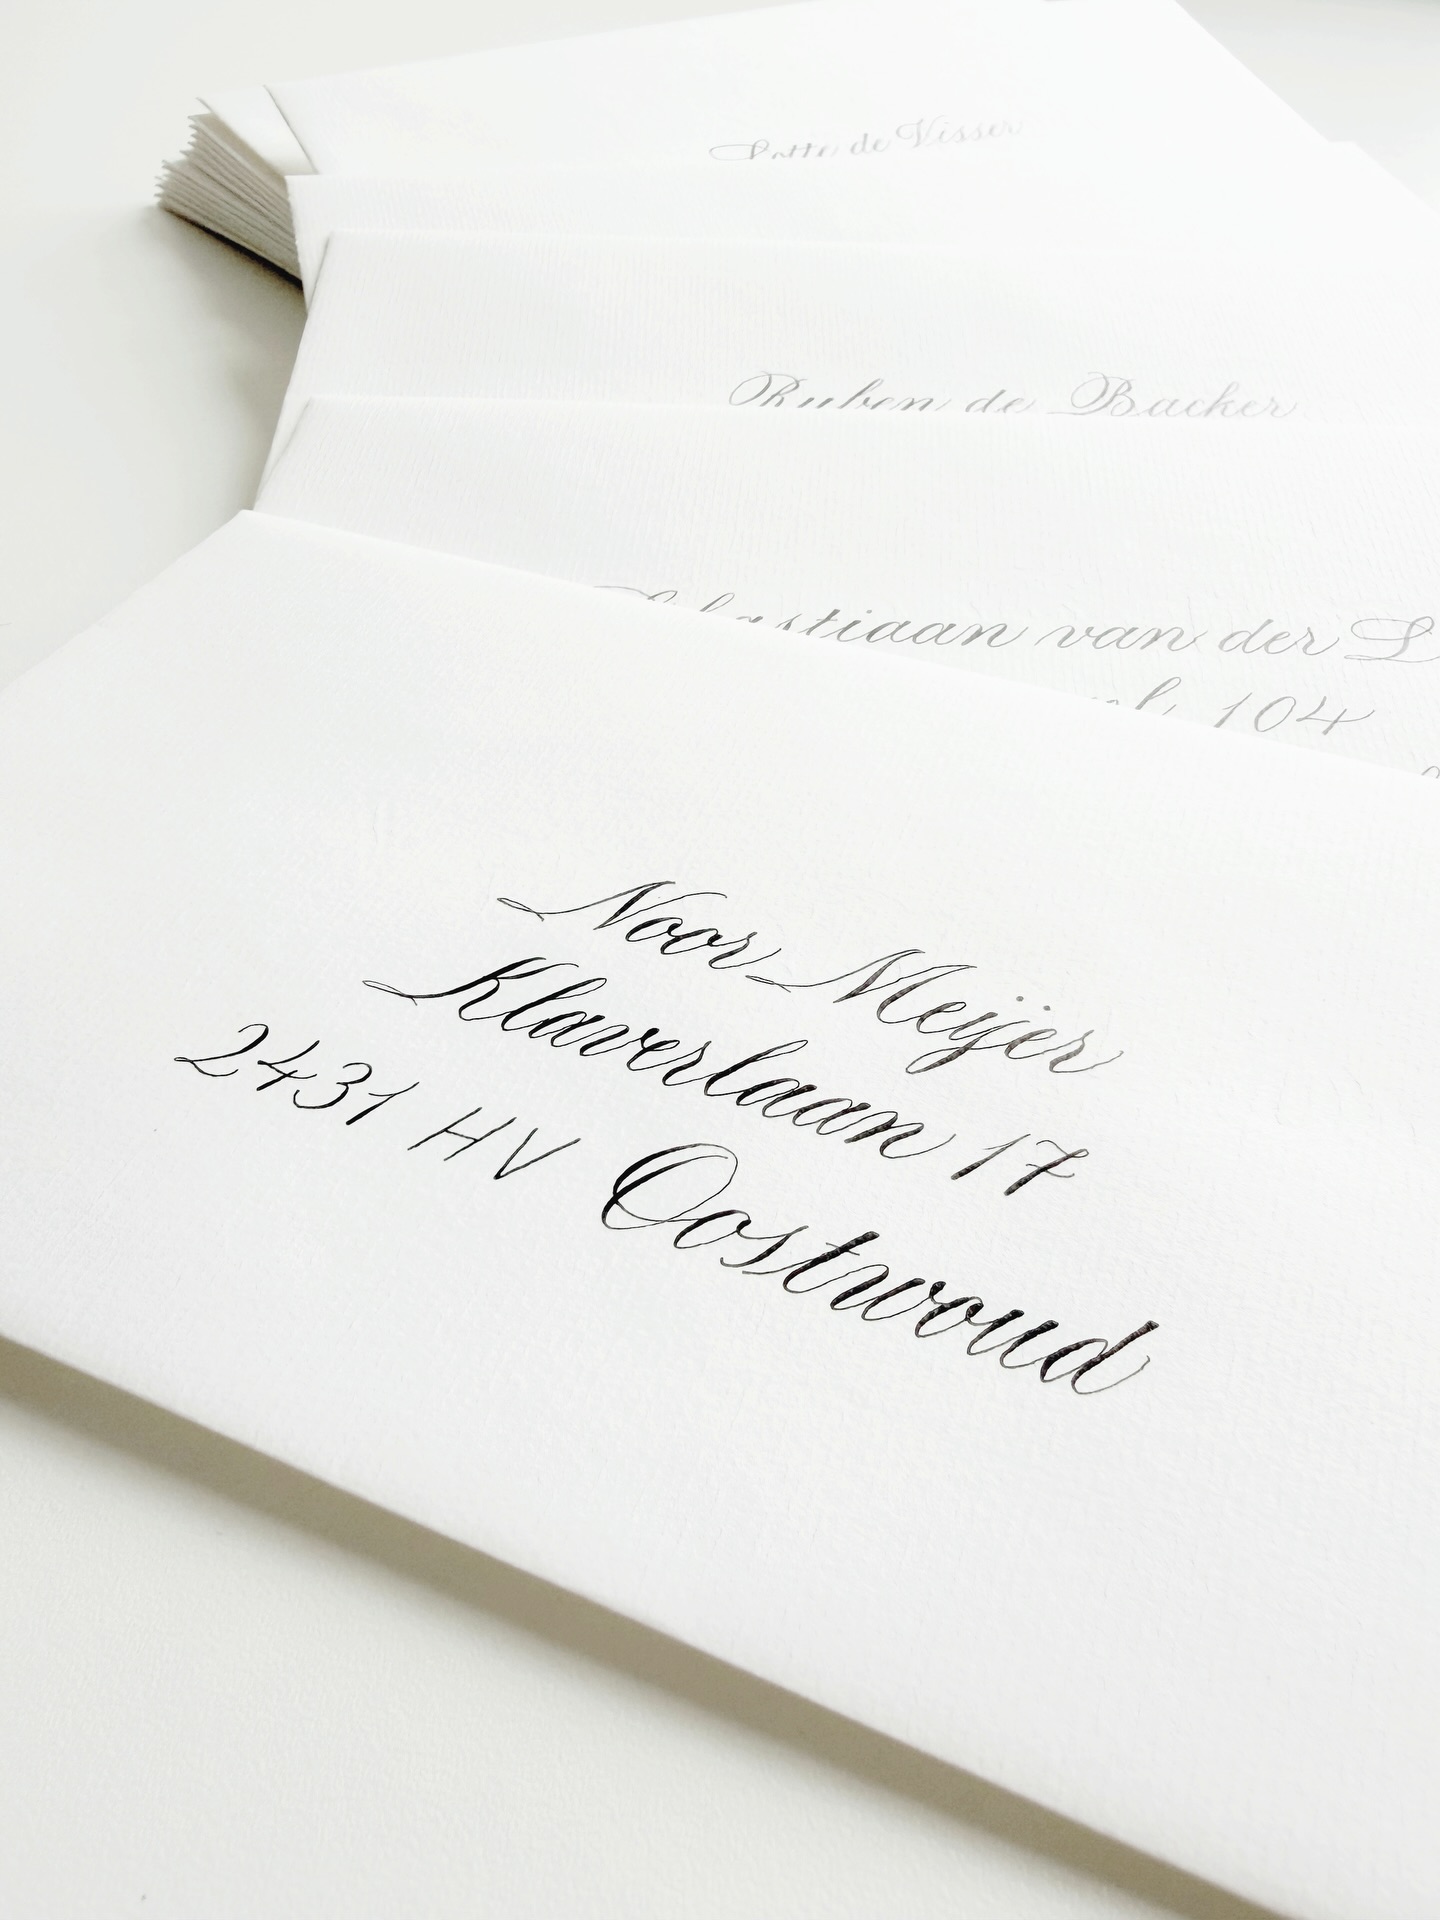 Lotte de Visser
Ruben de Backer
van der
104
Noor Meijer
Klaverlaan 17
2431 HV Oostwoud